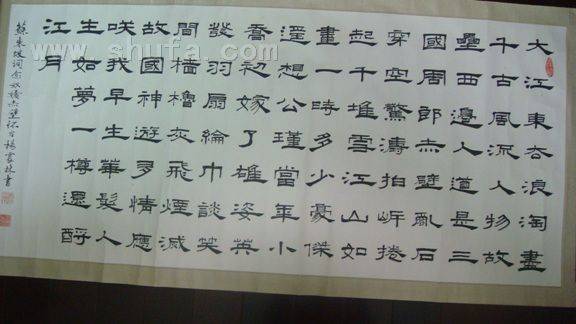 大江東去浪淘盡
千古風流人物故
壘西邊人道是三
國周郎赤壁亂石
穿空驚濤拍岸捲
起千堆雪江山如
畫一時多少豪傑
遙想公瑾當年小
喬初嫁了雄姿英
發羽扇綸巾談笑
間檣櫓灰飛煙滅
故國神遊多情應
咲我早生華髮人
生如夢一樽還酹
江月
蘇東坡詞念奴嬌赤壁懷古楊書
书法江湖
www.shufa.com